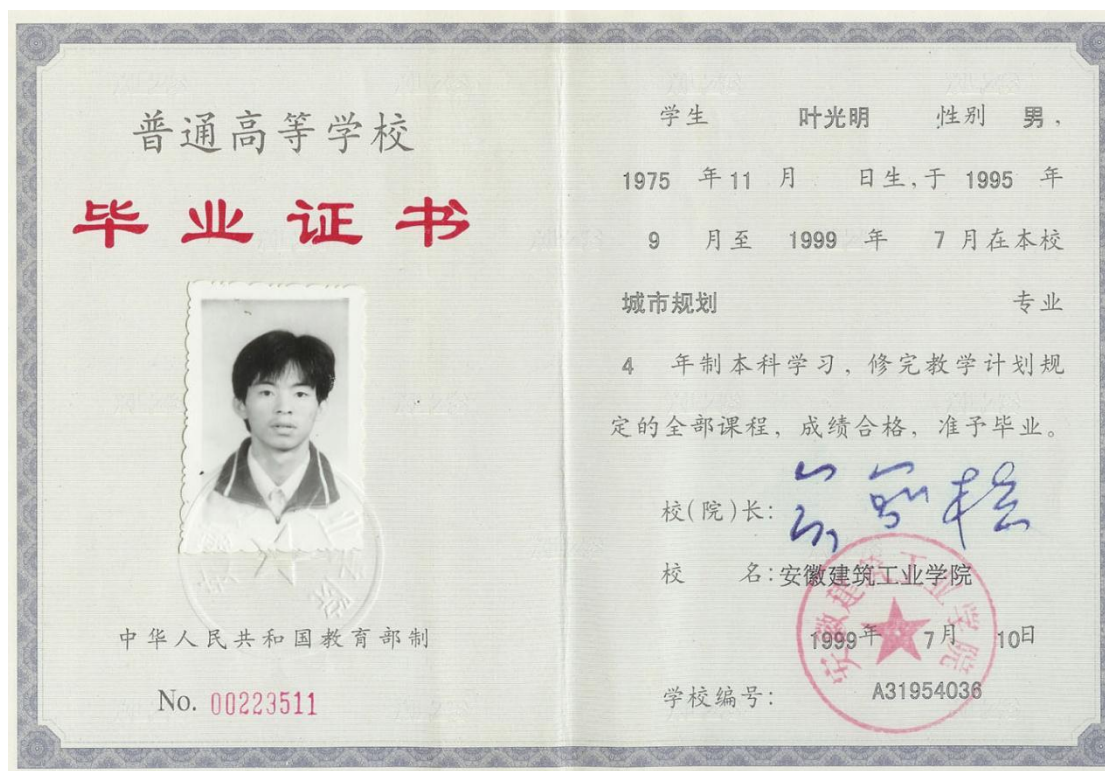 普通高等学校
毕业证书
中华人民共和国教育部制
No. 00223511
学生 叶光明 性别 男，
1975 年 11 月 日生，于 1995 年
9 月至 1999 年 7 月在本校
城市规划 专业
4 年制本科学习，修完教学计划规
定的全部课程，成绩合格，准予毕业。
校(院)长：
校 名：安徽建筑工业学院
安徽建筑工业学院
1999年 7月 10日
学校编号： A31954036